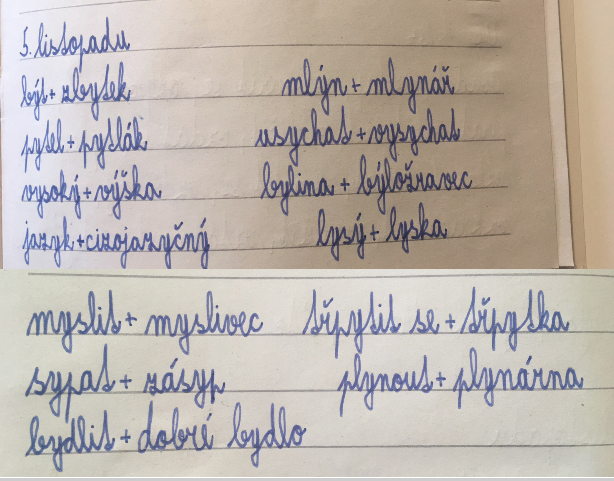 5. listopadu
být + zbytek mlýn + mlynář
pytel + pytlák usychat + vysychat
vysoký + výška bylina + býložravec
jazyk + cizojazyčný lysý + lyska
myslit + myslivec třpytit se + třpytka
sypat + zásyp plynout + plynárna
bydlit + dobré bydlo